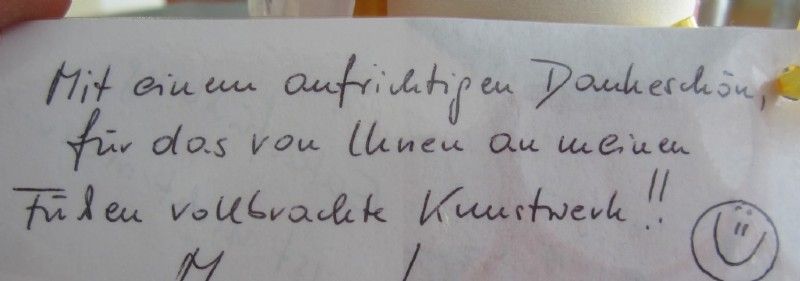 Mit einem aufrichtigen Dankeschön,
für das von Ihnen an meinen
Füßen vollbrachte Kunstwerk!!